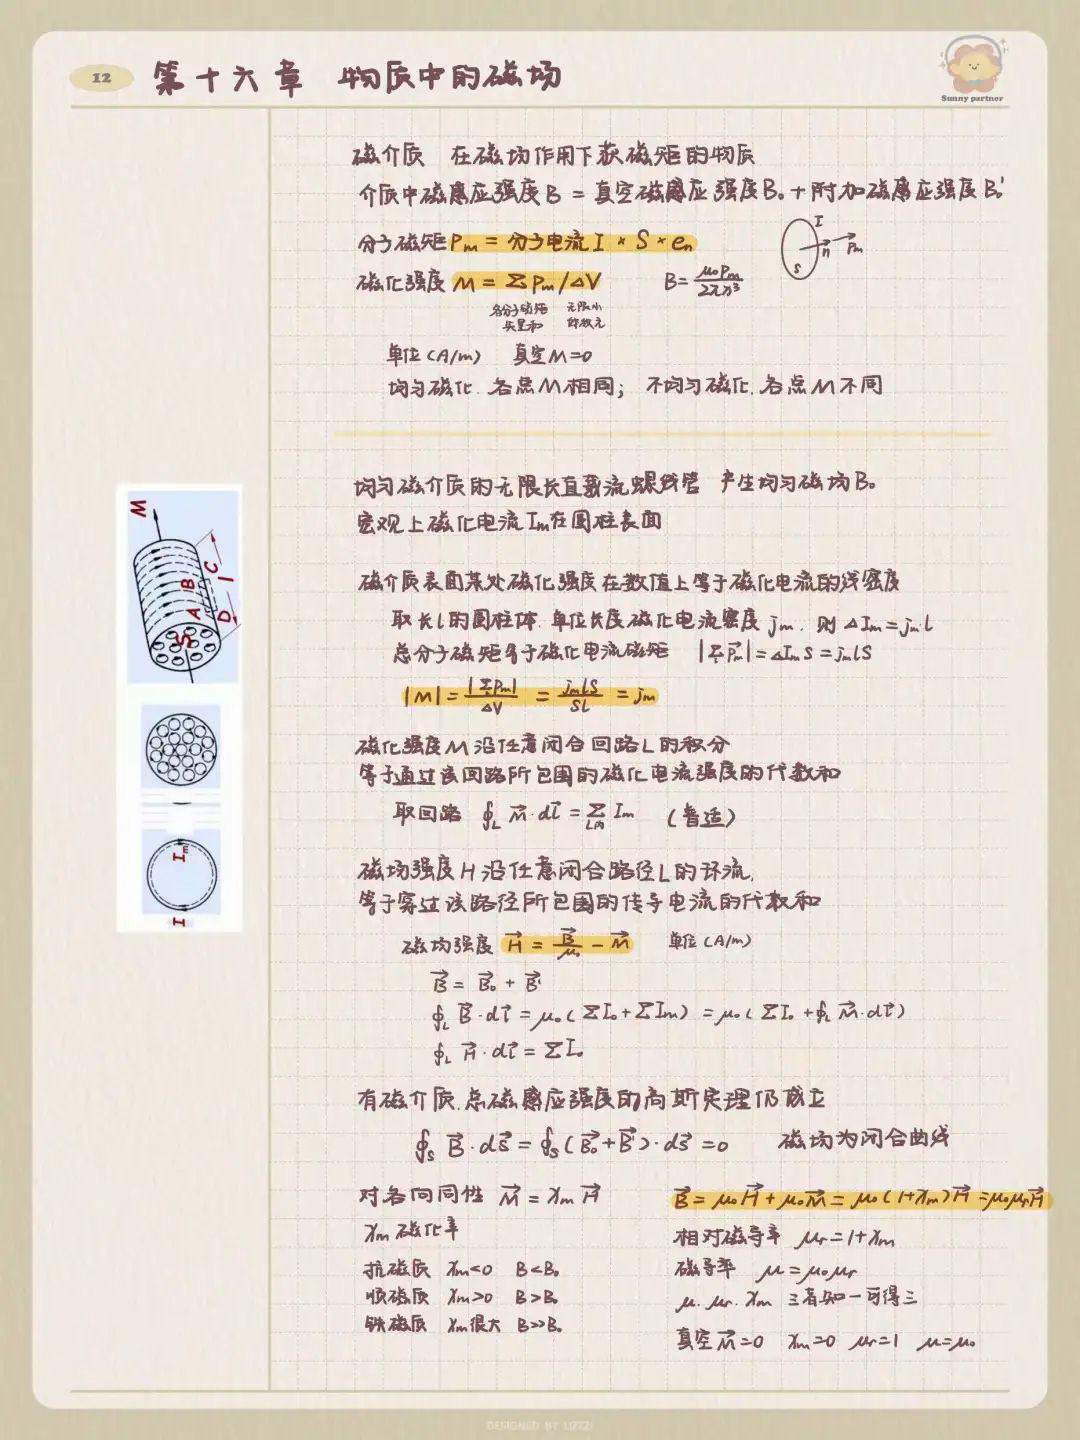 12 第十六章 物质中的磁场
Sunny partner
磁介质 在磁场作用下获磁矩的物质
介质中磁感应强度B = 真空磁感应强度B₀ + 附加磁感应强度B₀'
分子磁矩 Pm = 分子电流 I × S × en
I
n Pm
S
磁化强度 M = ΣPm/ΔV B = μ₀Pm/2πx³
各分子磁矩 无限小
矢量和 体积元
单位(A/m) 真空M=0
均匀磁化.各点M相同; 不均匀磁化.各点M不同
均匀磁介质的无限长直载流螺线管 产生均匀磁场B₀
宏观上磁化电流Im在圆柱表面
磁介质表面某处磁化强度在数值上等于磁化电流的线密度
取长l的圆柱体.单位长度磁化电流密度jm. 则ΔIm=jm·l
总分子磁矩等于磁化电流磁矩 |ΣP⃗m|=ΔImS=jmlS
|M| = |ΣPm|/ΔV = jmlS/Sl = jm
磁化强度M沿任意闭合回路L的积分
等于通过该回路所包围的磁化电流强度的代数和
取回路 ∮L M⃗·dl⃗ = ΣL内 Im (普适)
磁场强度H沿任意闭合路径L的环流,
等于穿过该路径所包围的传导电流的代数和
磁场强度 H⃗ = B⃗/μ₀ - M⃗ 单位(A/m)
B⃗ = B⃗₀ + B⃗'
∮L B⃗·dl⃗ = μ₀(ΣI₀+ΣIm) = μ₀(ΣI₀+∮L M⃗·dl⃗)
∮L H⃗·dl⃗ = ΣI₀
有磁介质.总磁感应强度的高斯定理仍成立
∮S B⃗·dS⃗ = ∮S(B⃗₀+B⃗')·dS⃗ = 0 磁场为闭合曲线
对各向同性 M⃗ = χm H⃗
χm 磁化率
抗磁质 χm<0 B<B₀
顺磁质 χm>0 B>B₀
铁磁质 χm很大 B>>B₀
B⃗ = μ₀H⃗+μ₀M⃗ = μ₀(1+χm)H⃗ = μ₀μrH⃗
相对磁导率 μr=1+χm
磁导率 μ=μ₀μr
μ. μr. χm 三者知一可得三
真空M⃗=0 χm=0 μr=1 μ=μ₀
M
A B C
S D l
Im
I
DESIGNED BY LIZZZI